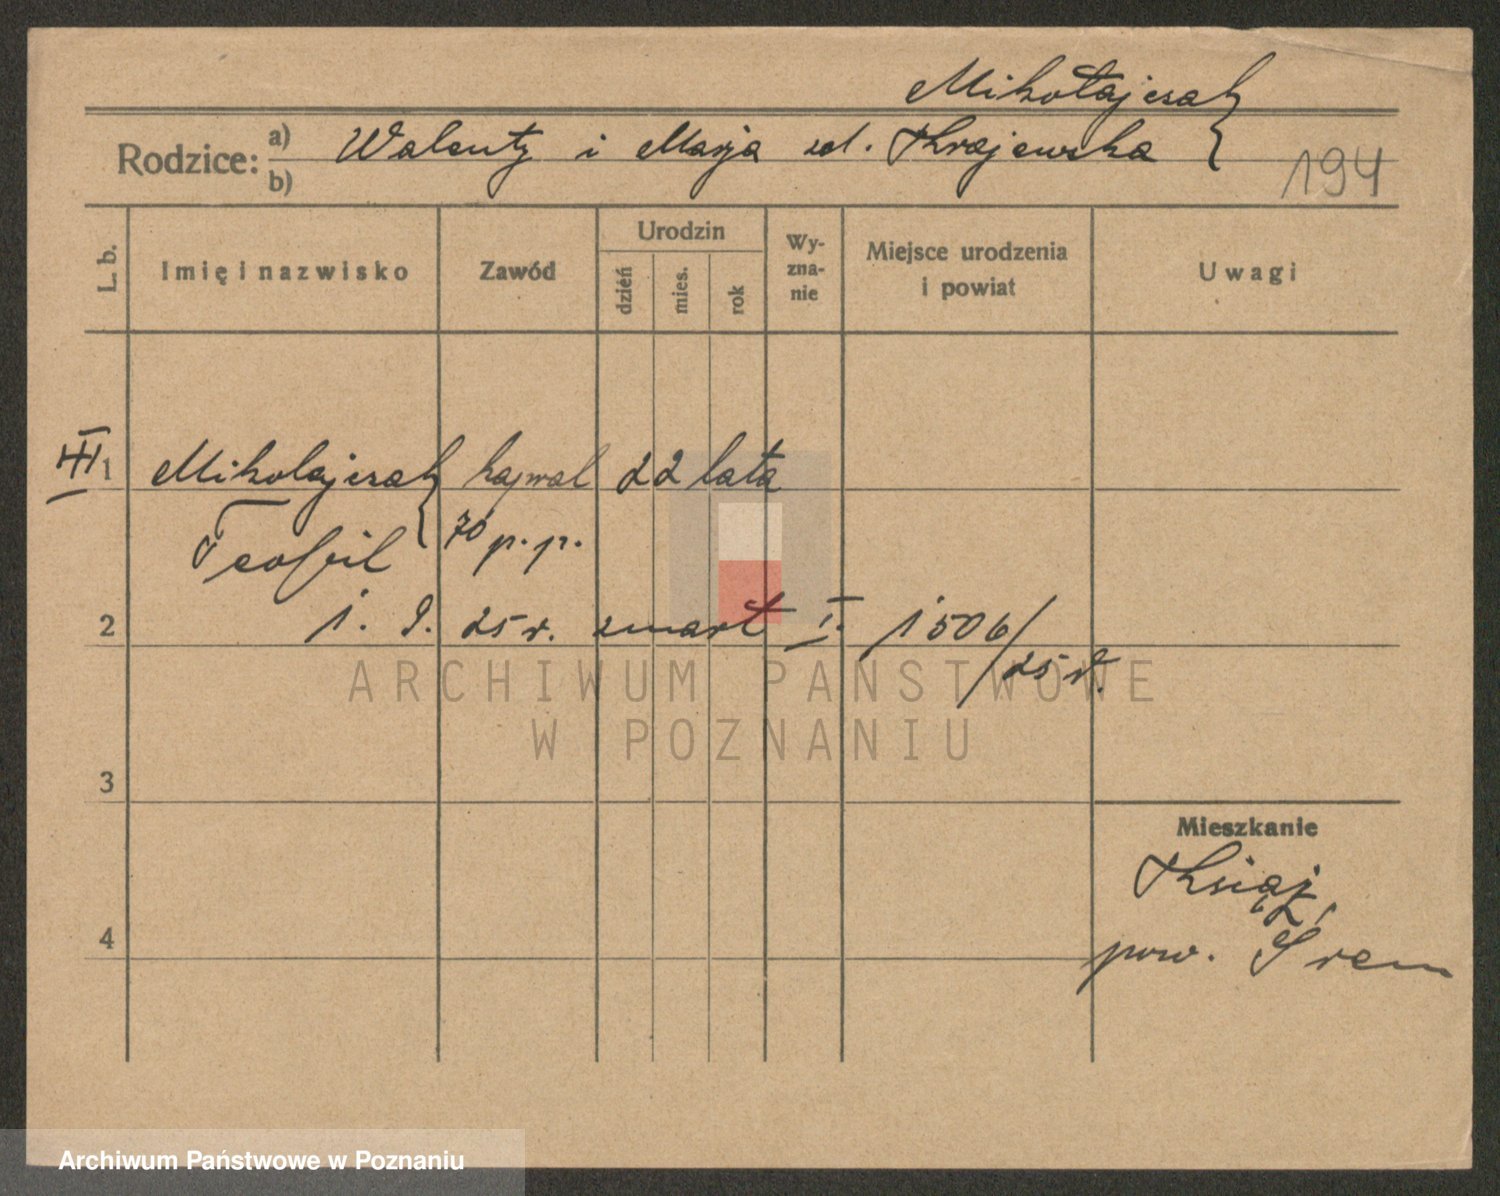 Mikołajczak
Rodzice: a) Walenty i Marja zd. Krajewska
b)
194
L. b.
Imię i nazwisko
Zawód
Urodzin
dzień
mies.
rok
Wy-
zna-
nie
Miejsce urodzenia
i powiat
Uwagi
III 1 Mikołajczak
Teofil
70 p. p.
22 lata
2 1. 9. 25 r. zmarł I. 1506/
25 r.
ARCHIWUM PAŃSTWOWE
W POZNANIU
3
Mieszkanie
Książ,
4 pow. Śrem
Archiwum Państwowe w Poznaniu